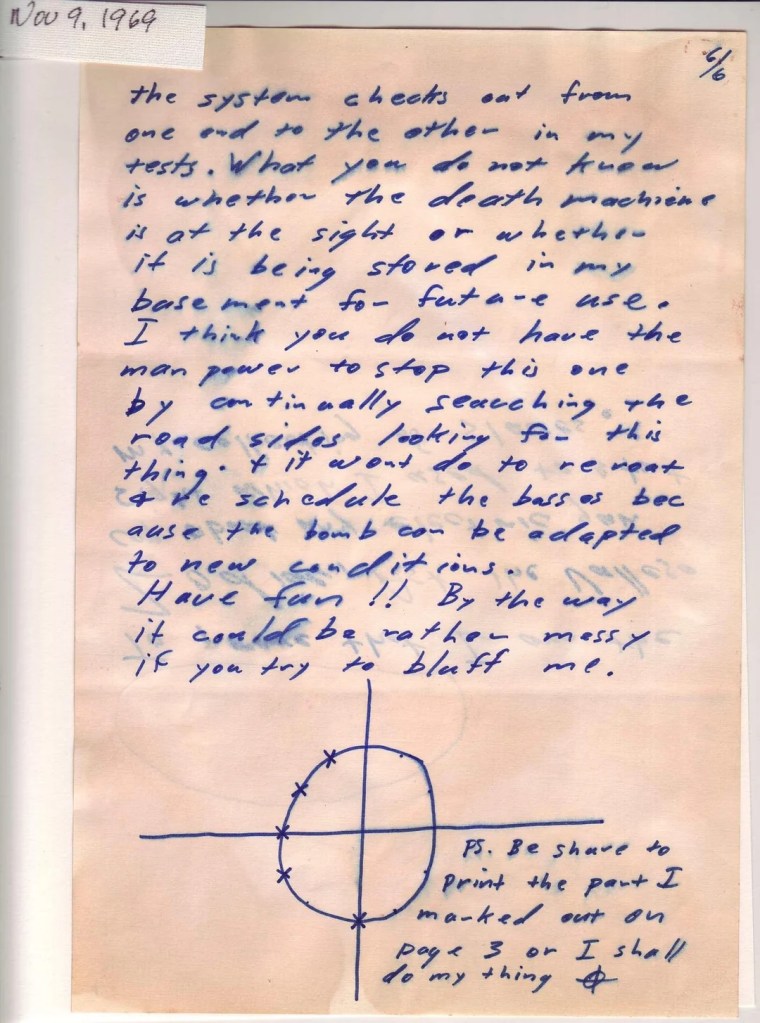 Nov 9, 1969
6/6
the system checks out from
one end to the other in my
tests. What you do not know
is whether the death machiene
is at the sight or whether
it is being stored in my
base ment for future use.
I think you do not have the
man power to stop this one
by continually searching the
road sides looking for this
thing. + it wont do to re roat
+ re schedule the busses bec
ause the bomb can be adapted
to new conditions.
Have fun !! By the way
it could be rather messy
if you try to bluff me.
PS. Be shure to
print the part I
marked out on
page 3 or I shall
do my thing